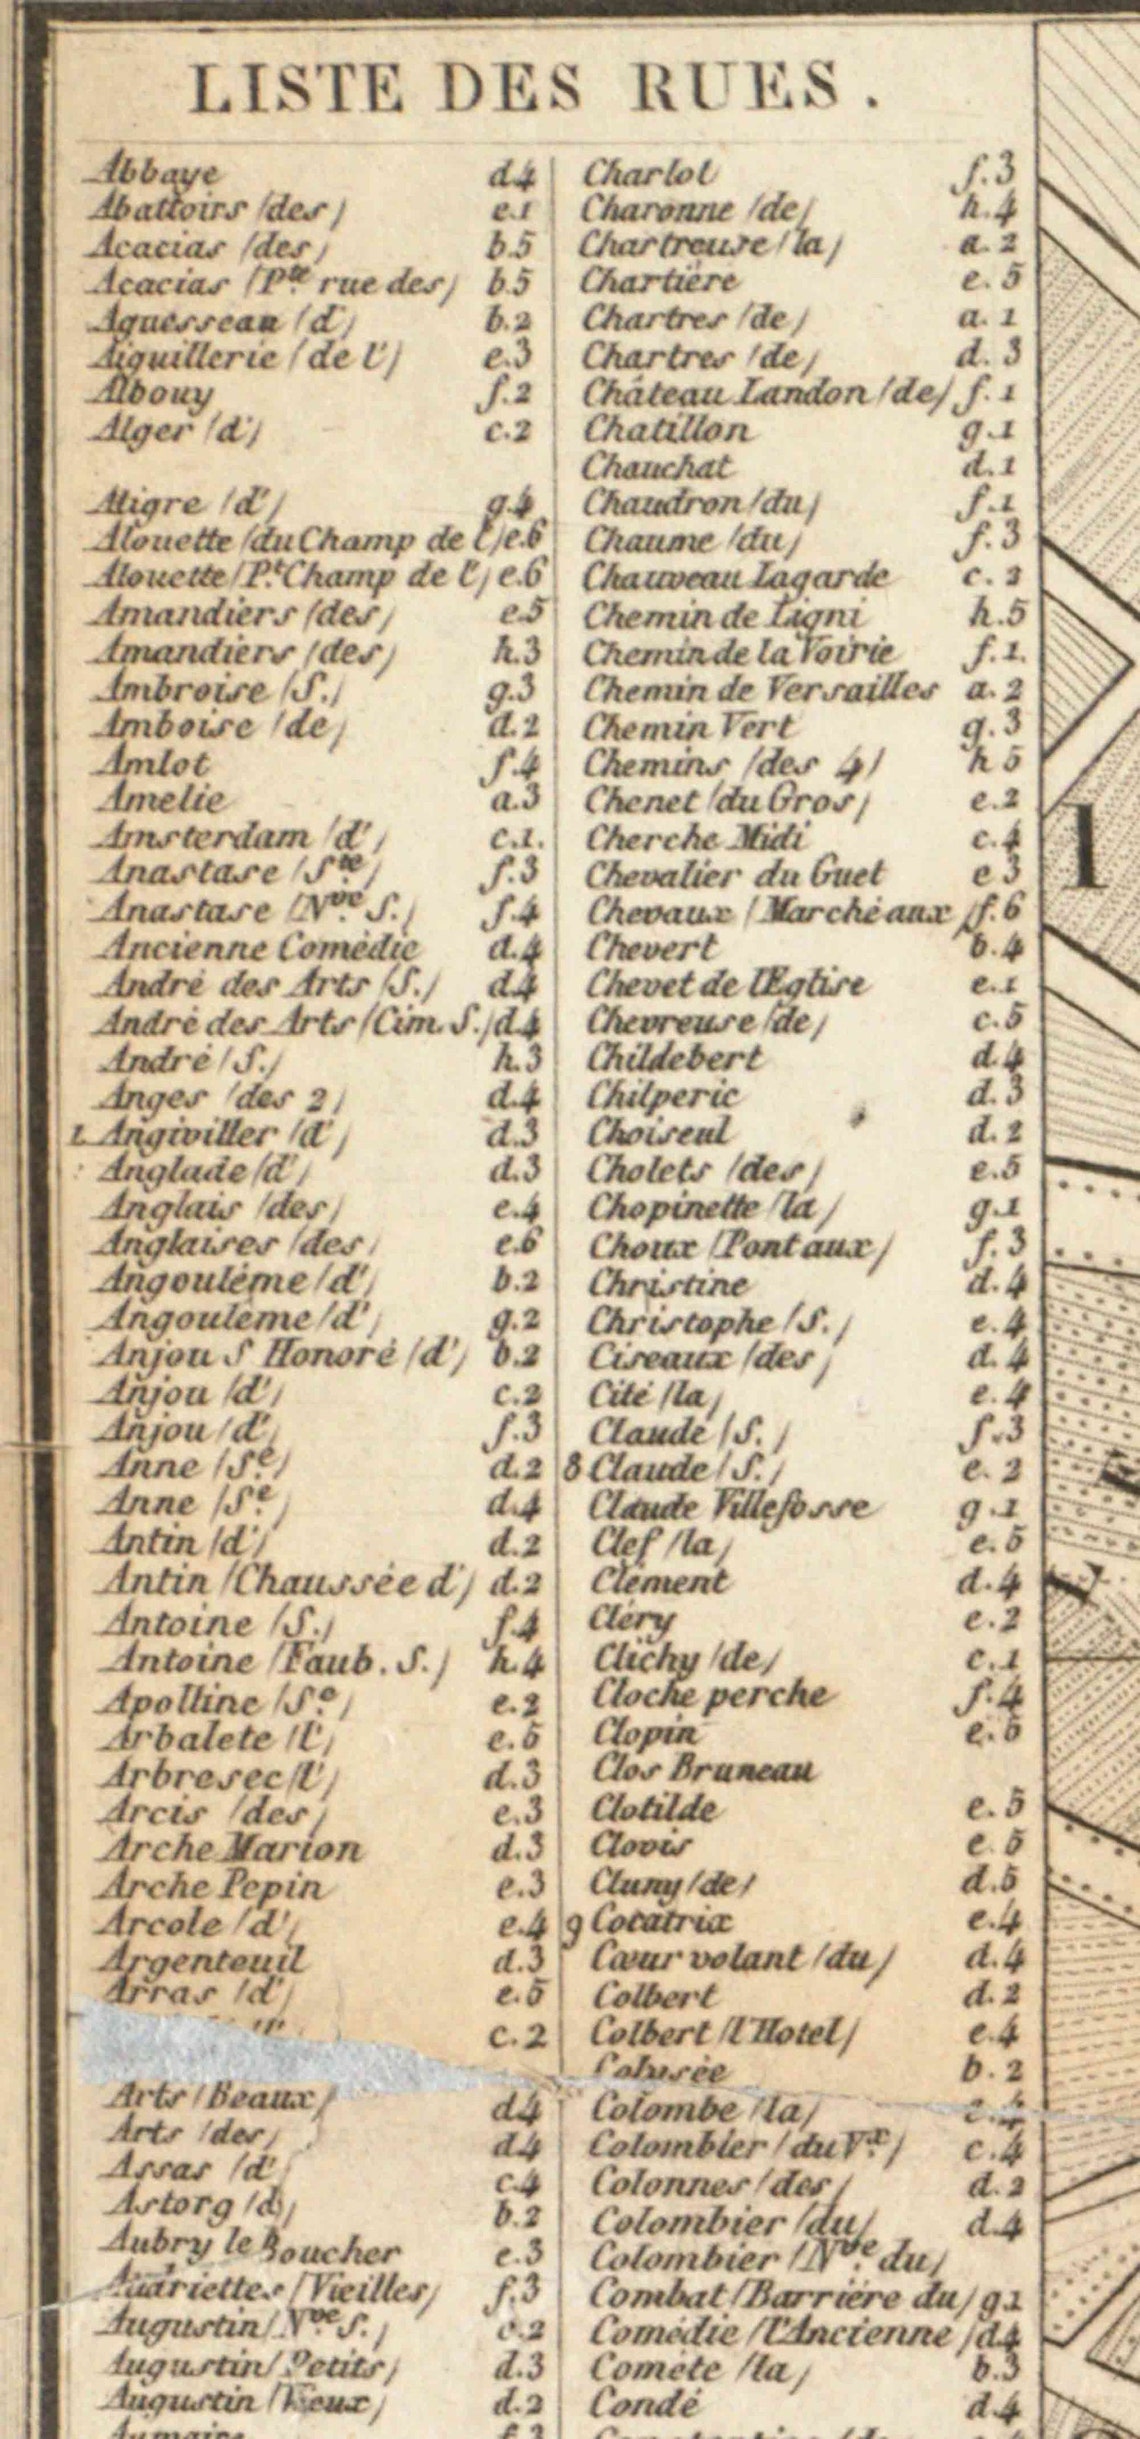 LISTE DES RUES.
Abbaye d.4
Abattoirs (des) e.1
Acacias (des) b.5
Acacias (Pte rue des) b.5
Aguesseau (d') b.2
Aiguillerie (de l') e.3
Albouy f.2
Alger (d') c.2
Aligre (d') g.4
Alouette (du Champ de l') e.6
Alouette (Pt Champ de l') e.6
Amandiers (des) e.5
Amandiers (des) h.3
Ambroise (S.) g.3
Amboise (de) d.2
Amlot f.4
Amelie a.3
Amsterdam (d') c.1.
Anastase (Ste) f.3
Anastase (Nve S.) f.4
Ancienne Comédie d.4
André des Arts (S.) d.4
André des Arts (Cim. S.) d.4
André (S.) h.3
Anges (des 2) d.4
1. Angiviller (d') d.3
Anglade (d') d.3
Anglais (des) e.4
Anglaises (des) e.6
Angoulême (d') b.2
Angoulême (d') g.2
Anjou S Honoré (d') b.2
Anjou (d') c.2
Anjou (d') f.3
Anne (Se) d.2
Anne (Se) d.4
Antin (d') d.2
Antin (Chaussée d') d.2
Antoine (S.) f.4
Antoine (Faub. S.) h.4
Apolline (Se) e.2
Arbalete (l') e.5
Arbre sec (l') d.3
Arcis (des) e.3
Arche Marion d.3
Arche Pepin e.3
Arcole (d') e.4
Argenteuil d.3
Arras (d') e.5
c.2
Arts (Beaux) d.4
Arts (des) d.4
Assas (d') c.4
Astorg (d') b.2
Aubry le Boucher e.3
Audriettes (Vieilles) f.3
Augustin (Nve S.) c.2
Augustin (Petits) d.3
Augustin (Vieux) d.2
Charlot f.3
Charonne (de) h.4
Chartreuse (la) a.2
Chartière e.5
Chartres (de) a.1
Chartres (de) d.3
Château Landon (de) f.1
Chatillon g.1
Chauchat d.1
Chaudron (du) f.1
Chaume (du) f.3
Chauveau Lagarde c.2
Chemin de Ligni h.5
Chemin de la Voirie f.1.
Chemin de Versailles a.2
Chemin Vert g.3
Chemins (des 4) h 5
Chenet (du Gros) e.2
Cherche Midi c.4
Chevalier du Guet e 3
Chevaux (Marché aux) f.6
Chevert b.4
Chevet de l'Eglise e.1
Chevreuse (de) c.5
Childebert d.4
Chilperic d.3
Choiseul d.2
Cholets (des) e.5
Chopinette (la) g.1
Choux (Pont aux) f.3
Christine d.4
Christophe (S.) e.4
Ciseaux (des) d.4
Cité (la) e.4
Claude (S.) f.3
8 Claude (S.) e.2
Claude Villefosse g.1
Clef (la) e.5
Clément d.4
Cléry e.2
Clichy (de) c.1
Cloche perche f.4
Clopin e.5
Clos Bruneau
Clotilde e.5
Clovis e.5
Cluny (de) d.5
9 Cocatrix e.4
Cœur volant (du) d.4
Colbert d.2
Colbert (l'Hotel) e.4
Colysée b.2
Colombe (la) e.4
Colombier (du Vx) c.4
Colonnes (des) d.2
Colombier (du) d.4
Colombier (Nve du)
Combat (Barriére du) g.1
Comédie (l'Ancienne) d.4
Comète (la) b.3
Condé d.4